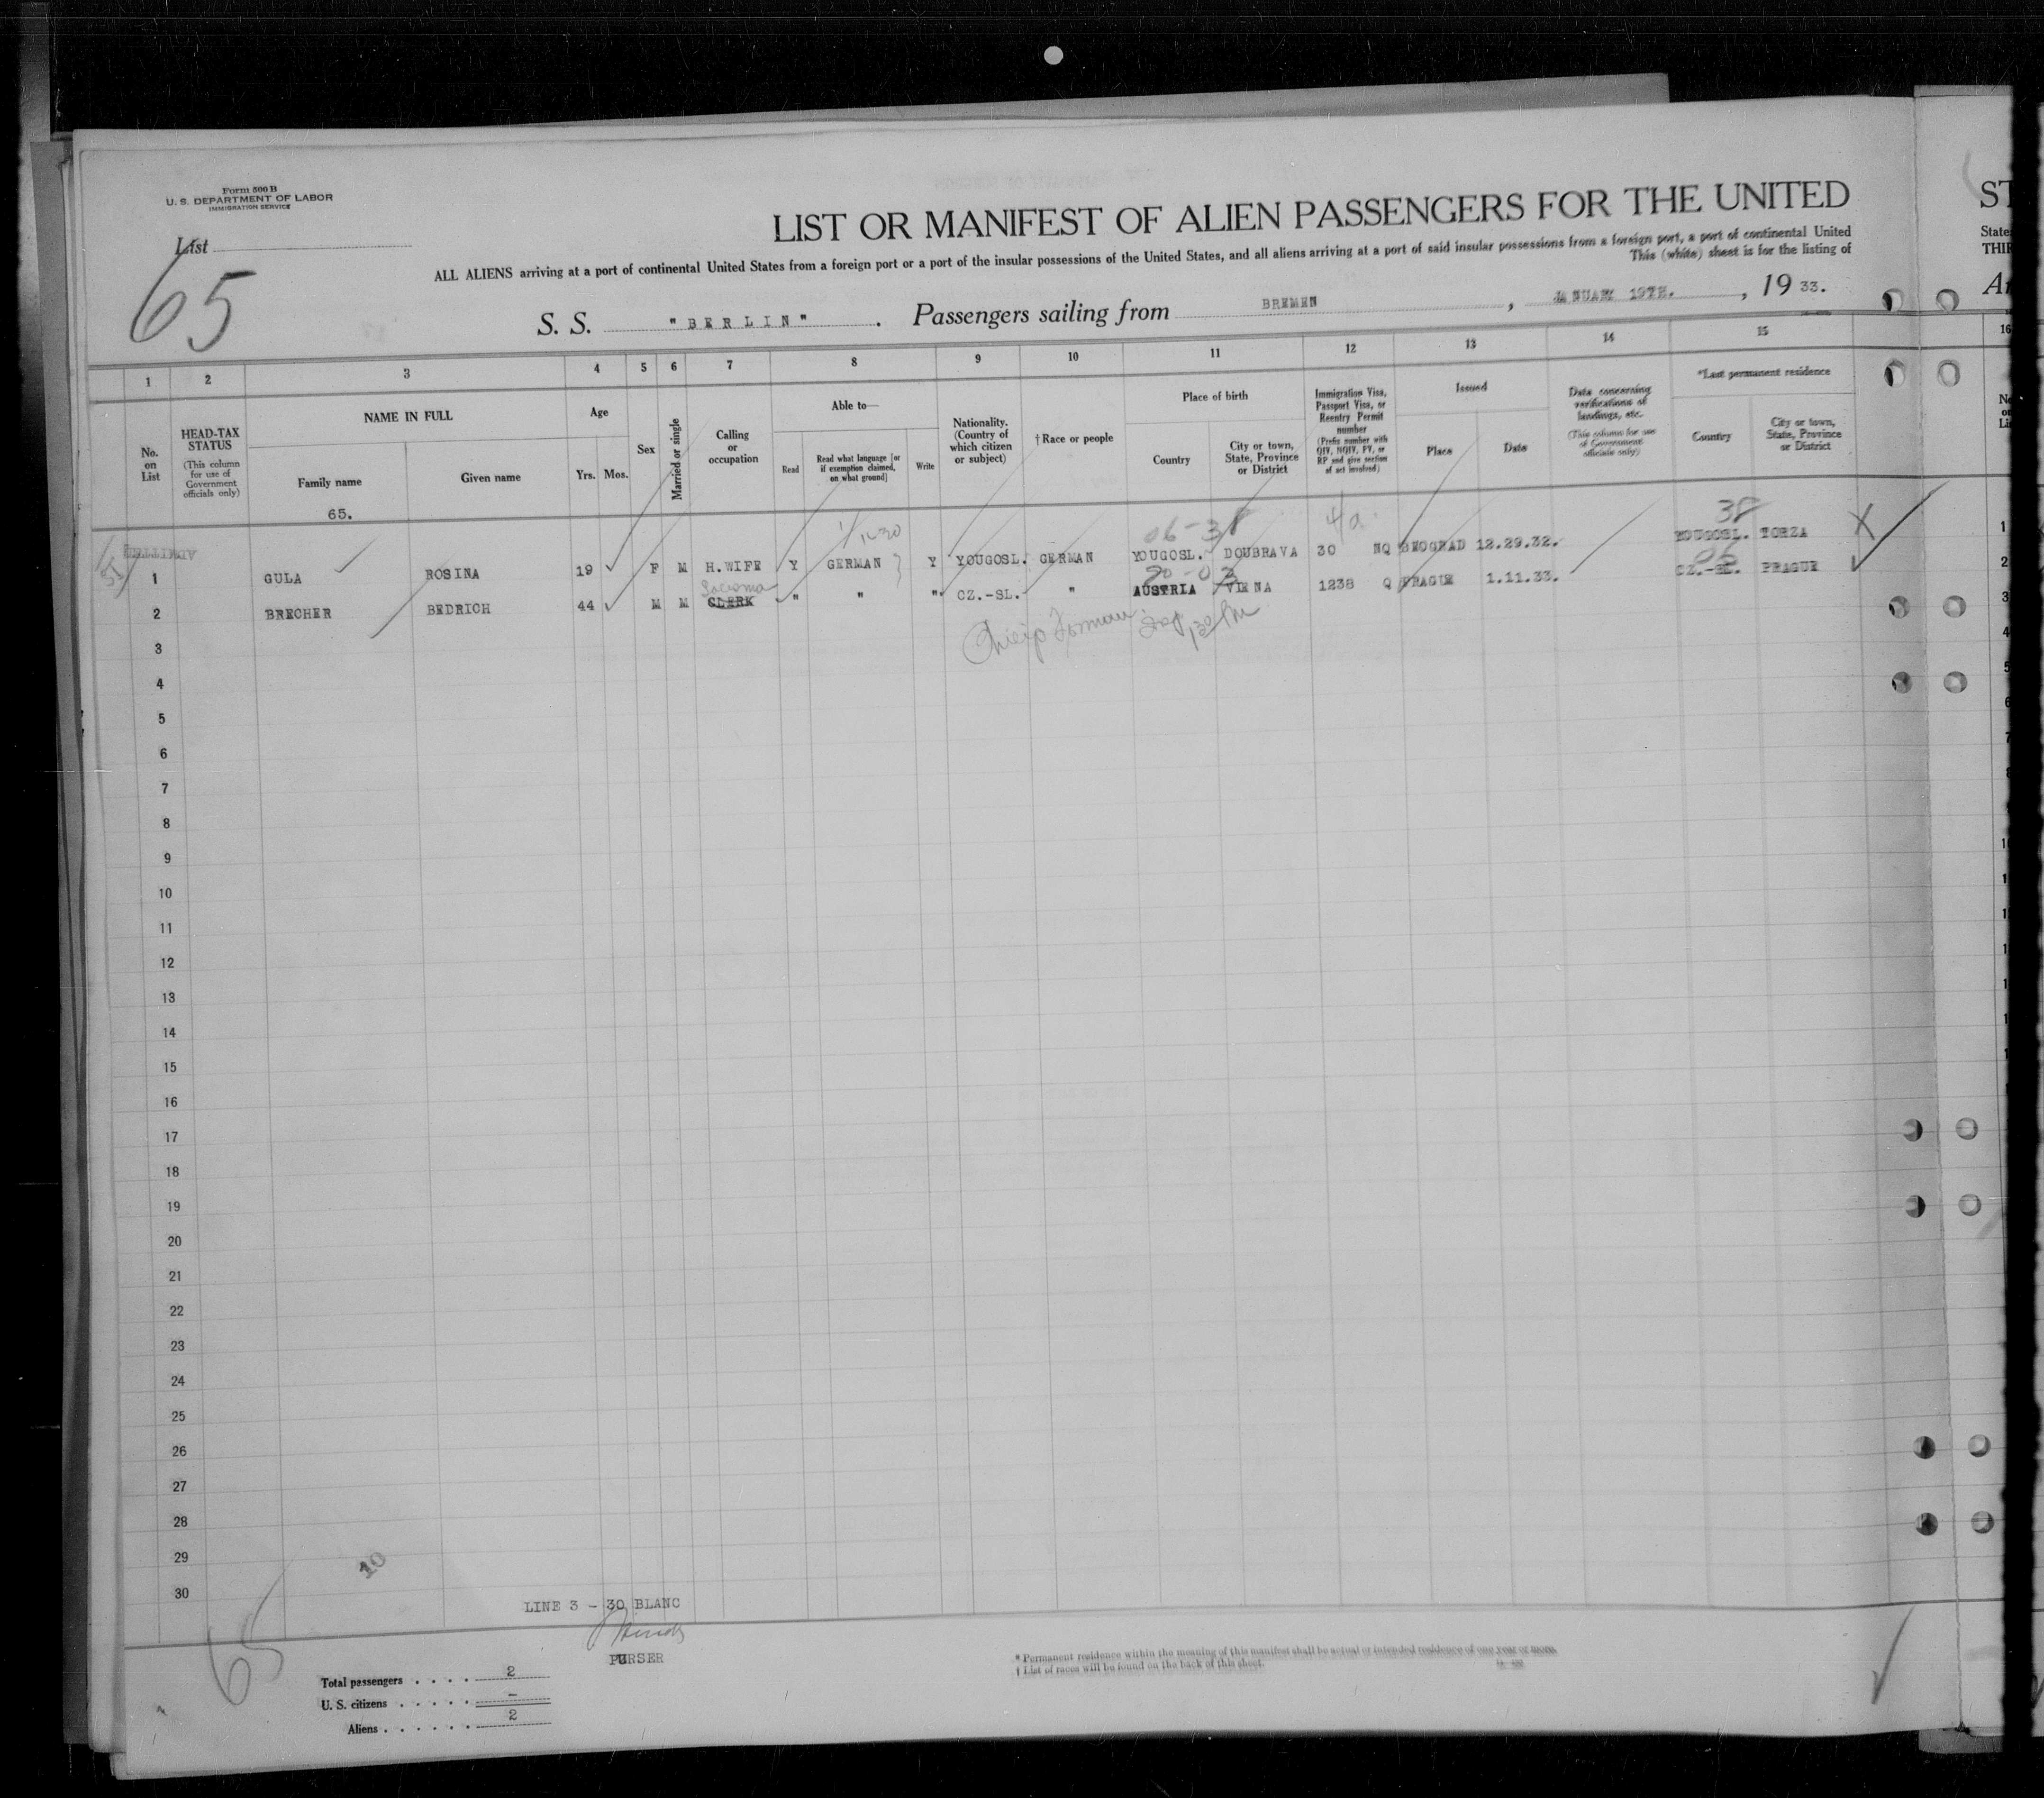 Form 500 B
U. S. DEPARTMENT OF LABOR
IMMIGRATION SERVICE
List
65
LIST OR MANIFEST OF ALIEN PASSENGERS FOR THE UNITED
ST
ALL ALIENS arriving at a port of continental United States from a foreign port or a port of the insular possessions of the United States, and all aliens arriving at a port of said insular possessions from a foreign port, a port of continental United
State
This (white) sheet is for the listing of
THIR
S. S. "BERLIN". Passengers sailing from BREMEN, JANUARY 19TH., 19 33.
1 2 3 4 5 6 7 8 9 10 11 12 13 14 15 16
No. on List
HEAD-TAX STATUS
(This column for use of Government officials only)
NAME IN FULL
Family name
Given name
Age
Yrs. Mos.
Sex
Married or single
Calling or occupation
Able to—
Read
Read what language [or if exemption claimed, on what ground]
Write
Nationality. (Country of which citizen or subject)
† Race or people
Place of birth
Country
City or town, State, Province or District
Immigration Visa, Passport Visa, or Reentry Permit number
(Prefix number with QIV, NQIV, PV, or RP and give section of act involved)
Issued
Place
Date
Data concerning verifications of landings, etc.
(This column for use of Government officials only)
*Last permanent residence
Country
City or town, State, Province or District
65.
06-38
4a
38
ADMITTED
SI
1 GULA ROSINA 19 F M H.WIFE Y GERMAN Y YOUGOSL. GERMAN YOUGOSL. DOUBRAVA 30 NQ BEOGRAD 12.29.32. YOUGOSL. TORZA X
06
2 BRECHER BEDRICH 44 M M CLERK " " " CZ.-SL. " AUSTRIA VIENA 1238 Q PRAGUE 1.11.33. CZ.-SL. PRAGUE
3
4
5
6
7
8
9
10
11
12
13
14
15
16
17
18
19
20
21
22
23
24
25
26
27
28
29
30
10
LINE 3 - 30 BLANC
PURSER
65
Total passengers . . . . 2
U. S. citizens . . . . . –
Aliens . . . . . . 2
* Permanent residence within the meaning of this manifest shall be actual or intended residence of one year or more.
† List of races will be found on the back of this sheet.